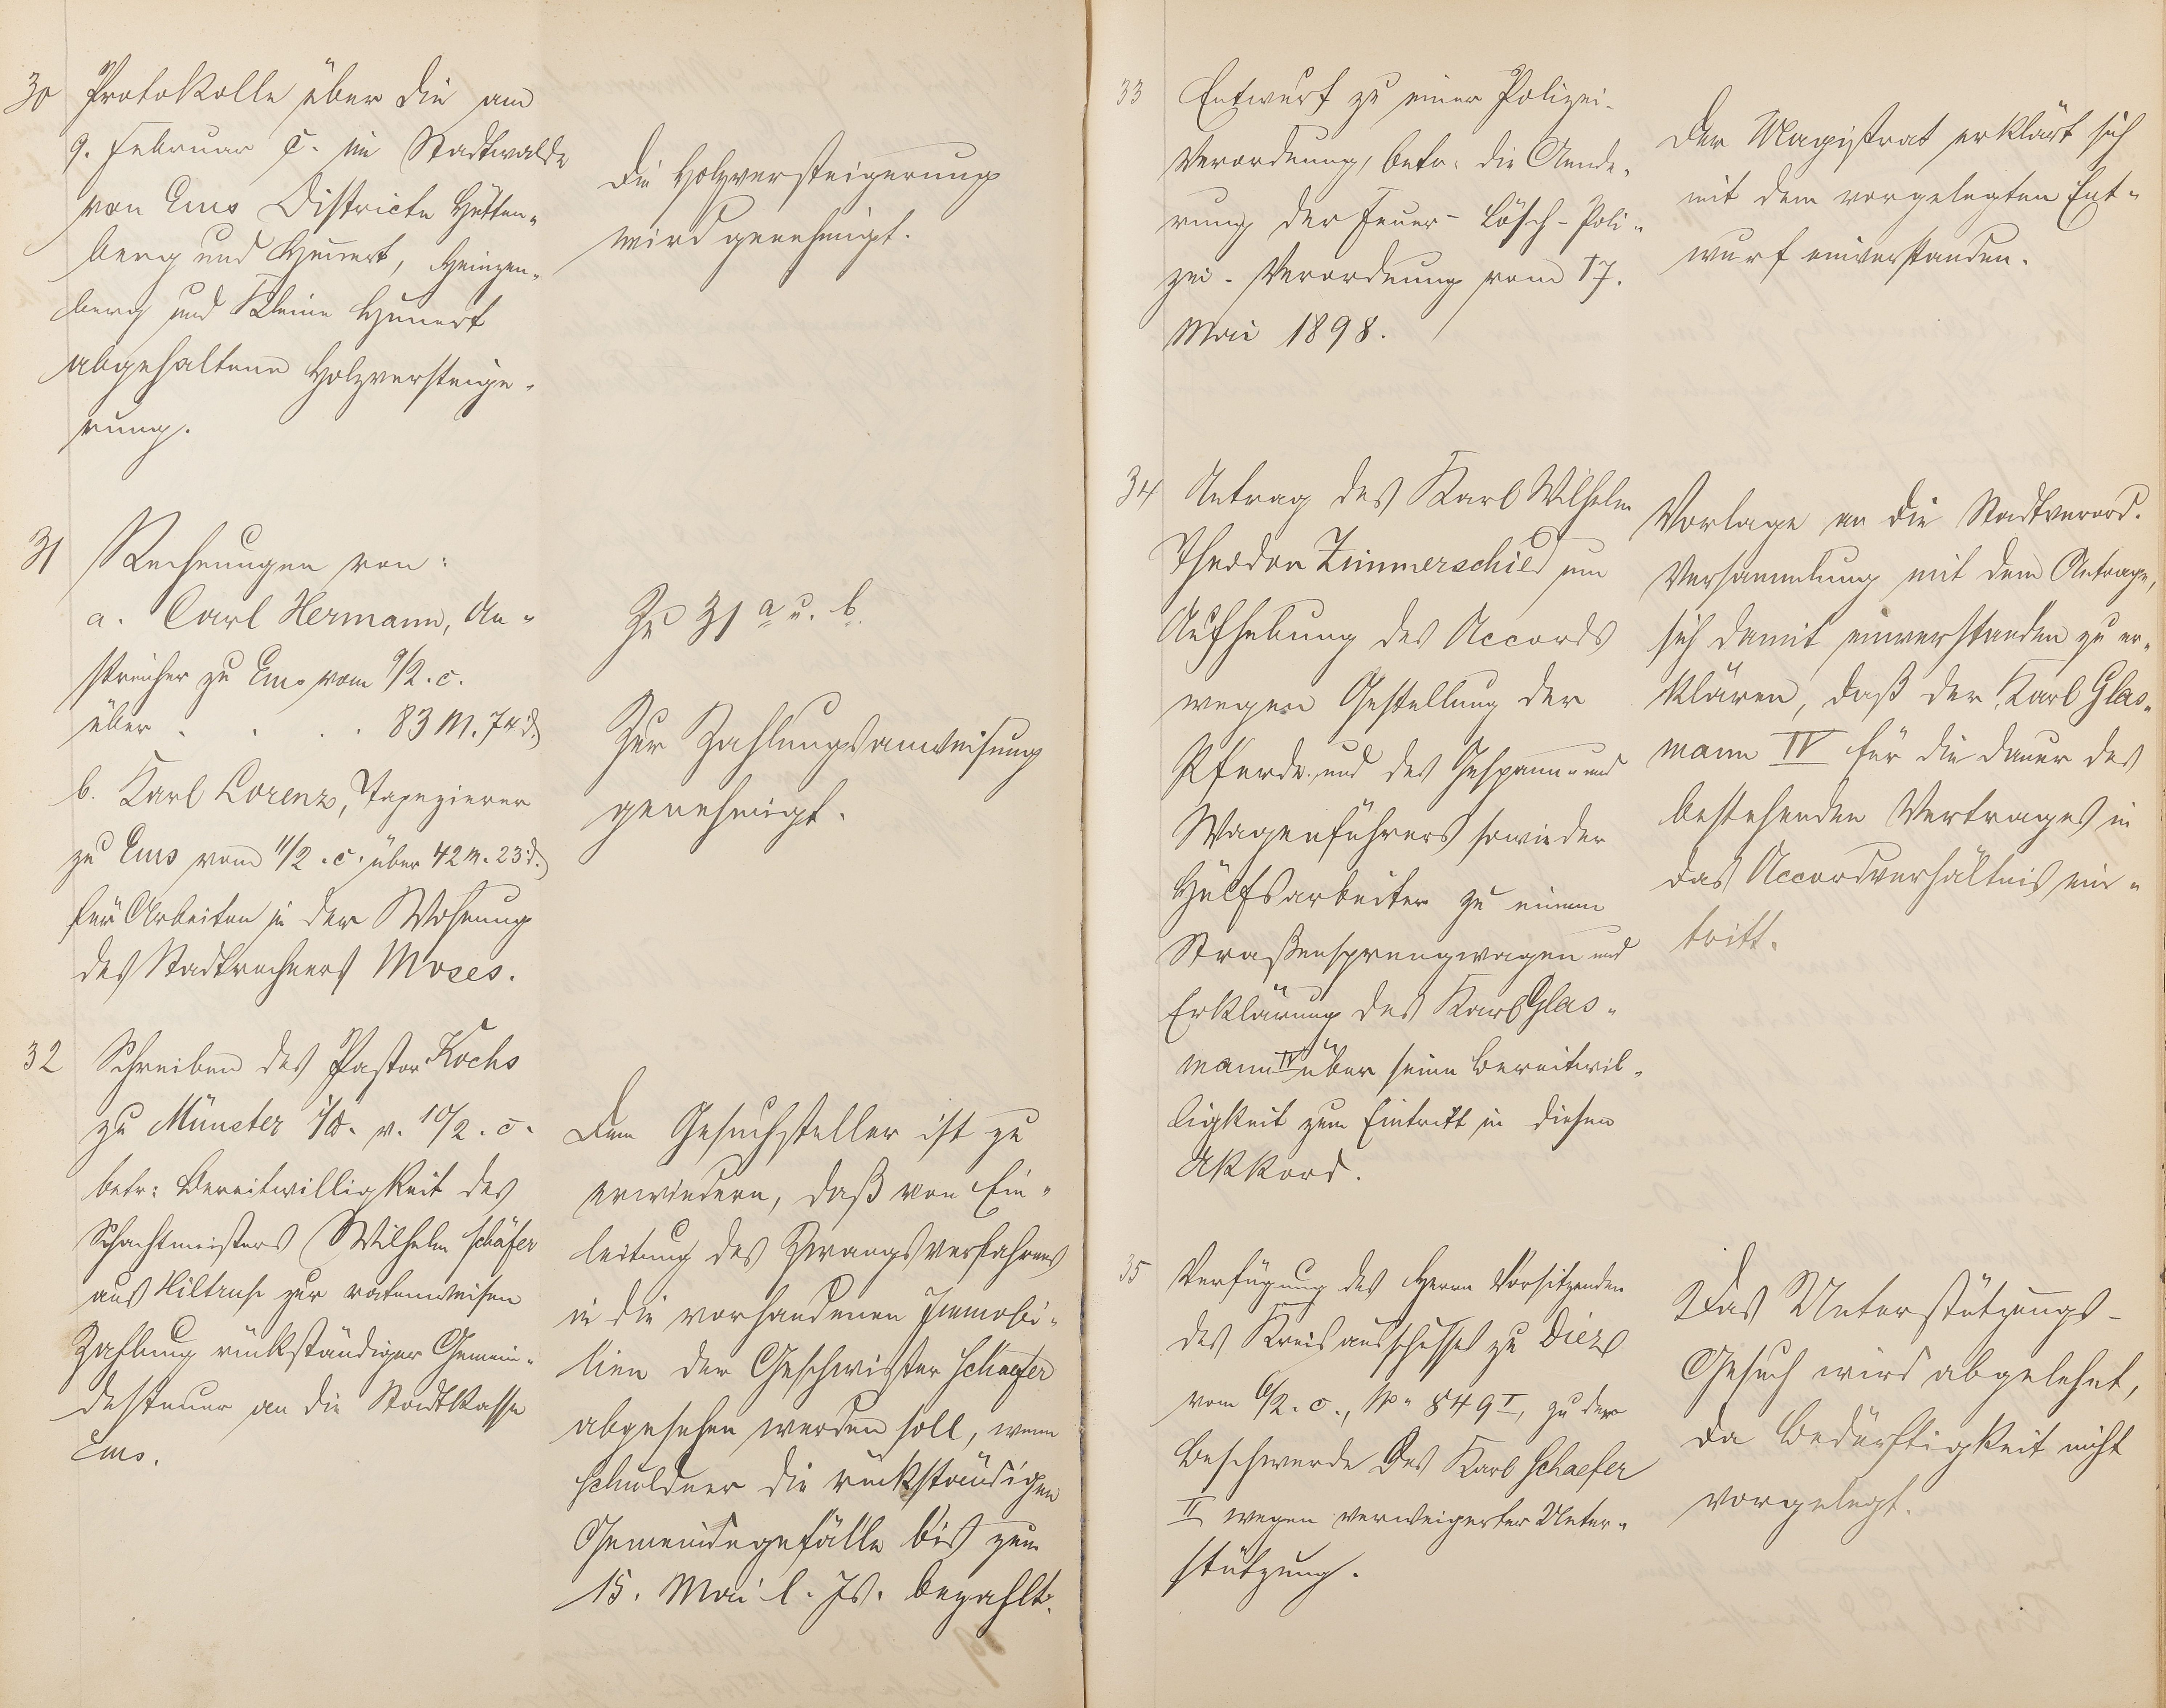 30 Protokolle über die am
9. Februar c. im Stadtwalde
von Ems Districte Hütten-
berg und Hunert, Heinzen-
berg und Kleine Hunert
abgehaltene Holzversteige-
rung.
Die Holzversteigerung
wird genehmigt.
31 Rechnungen von:
a. Carl Hermann, An-
streicher zu Ems vom 9/2. c.
über . . . . 83 M. 74 d.
b. Karl Lorenz, Tapezierer
zu Ems vom 11/2. c. über 42 M. 23 d.
für Arbeiten in der Wohnung
des Stadtrechners Moses.
Zu 31 a u. b.
Zur Zahlungsanweisung
genehmigt.
32 Schreiben des Pastor Kochs
zu Münster i/W. v. 10/2. c.
betr: Bereitwilligkeit des
Schachtmeisters Wilhelm Schäfer
aus Hiltrup zur ratenweisen
Zahlung rückständiger Gemein-
desteuer an die Stadtkasse
Ems.
Dem Gesuchsteller ist zu
erwiedern, daß von Ein-
leitung des Zwangsverfahrens
in die vorhandenen Immobi-
lien der Geschwister Schaefer
abgesehen werden soll, wenn
Schuldner die rückständigen
Gemeindegefälle bis zum
15. Mai l. Js. bezahlt.
33 Entwurf zu einer Polizei-
Verordnung, betr. die Aende-
rung der Feuer-Lösch-Poli-
zei-Verordnung vom 17.
Mai 1898.
Der Magistrat erklärt sich
mit dem vorgelegten Ent-
wurf einverstanden.
34 Antrag des Karl Wilhelm
Theodor Zimmerschied um
Aufhebung des Accords
wegen Gestellung der
Pferde und des Gespann- und
Wagenführers sowie der
Hülfsarbeiter zu einem
Straßensprengwagen und
Erklärung des Karl Glas-
mann IV über seine Bereitwil-
ligkeit zum Eintritt in diesen
Akkord.
Vorlage an die Stadtverord.
Versammlung mit dem Antrage,
sich damit einverstanden zu er-
klären, daß der Karl Glas-
mann IV für die Dauer des
bestehenden Vertrages in
das Accordverhältnis ein-
tritt.
35 Verfügung des Herrn Vorsitzenden
des Kreisausschusses zu Diez
vom 6/2. c., No. 849 I, zu der
Beschwerde des Karl Schaefer
II wegen verweigerter Unter-
stützung.
Das Unterstützungs-
Gesuch wird abgelehnt,
da Bedürftigkeit nicht
vorgelegt.